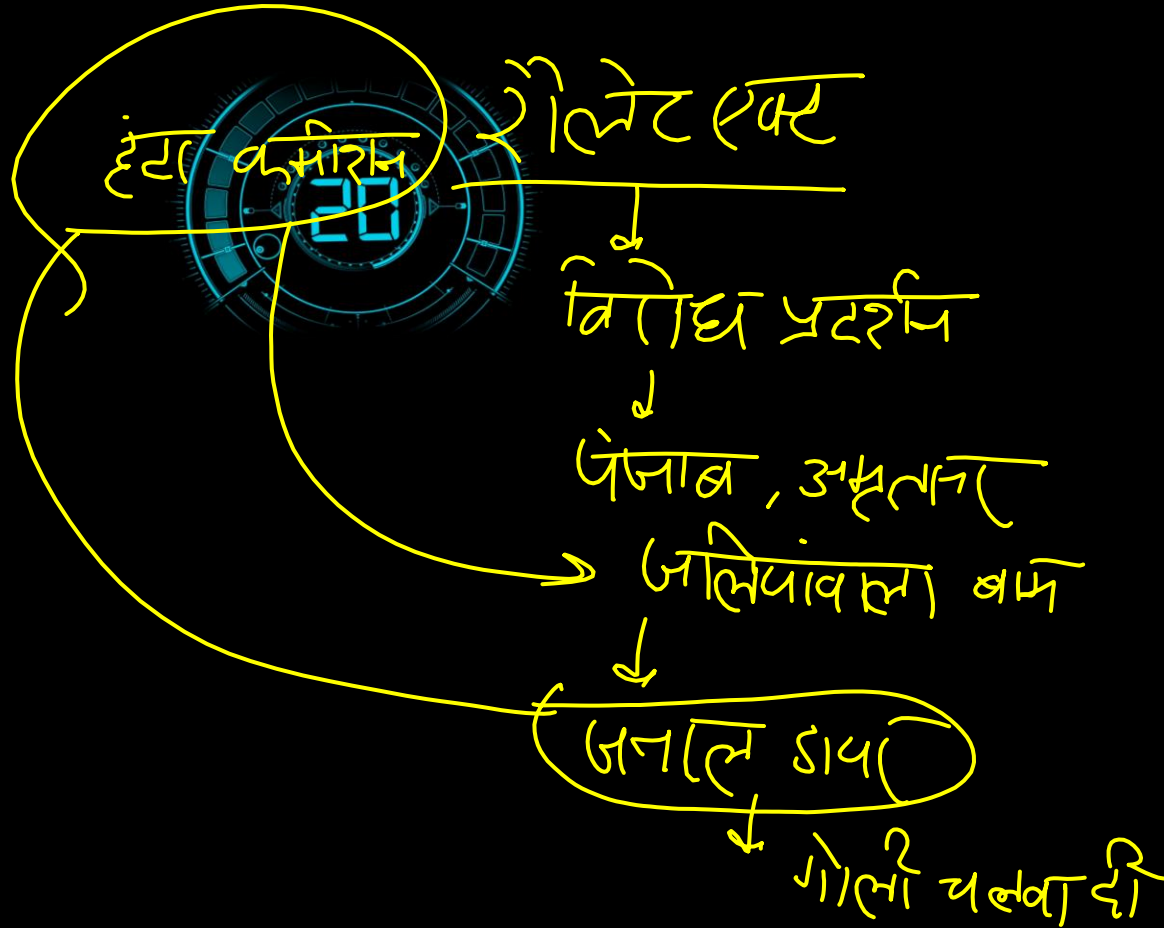 हंटर कमीशन
20
रौलेट एक्ट
विरोध प्रदर्शन
पंजाब, अमृतसर
जलियांवाला बाग
जनरल डायर
गोली चलवा दी